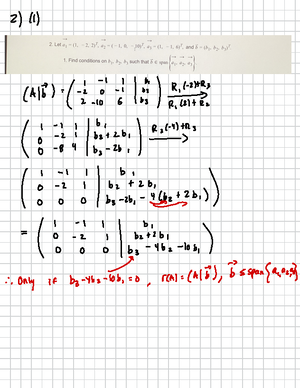 2) (1)
2. Let a₁ = (1, -2, 2)ᵀ, a₂ = (-1, 0, -10)ᵀ, a₃ = (1, -1, 6)ᵀ, and b = (b₁, b₂, b₃)ᵀ
1. Find conditions on b₁, b₂, b₃ such that b ∈ span {a₁, a₂, a₃}
(A|b) = ( 1 -1 1 | b₁
-2 0 -1 | b₂
2 -10 6 | b₃ ) R₁(-2)+R₃
R₁(2)+R₂
( 1 -1 1 | b₁
0 -2 1 | b₂+2b₁
0 -8 4 | b₃-2b₁ ) R₂(-4)+R₃
( 1 -1 1 | b₁
0 -2 1 | b₂ + 2b₁
0 0 0 | b₃-2b₁ -4(b₂+2b₁) )
= ( 1 -1 1 | b₁
0 -2 1 | b₂+2b₁
0 0 0 | b₃ -4b₂ -10b₁ )
∴ Only if b₃-4b₂-10b₁=0, r(A)=(A|b), b ∈ span{a₁,a₂,a₃}